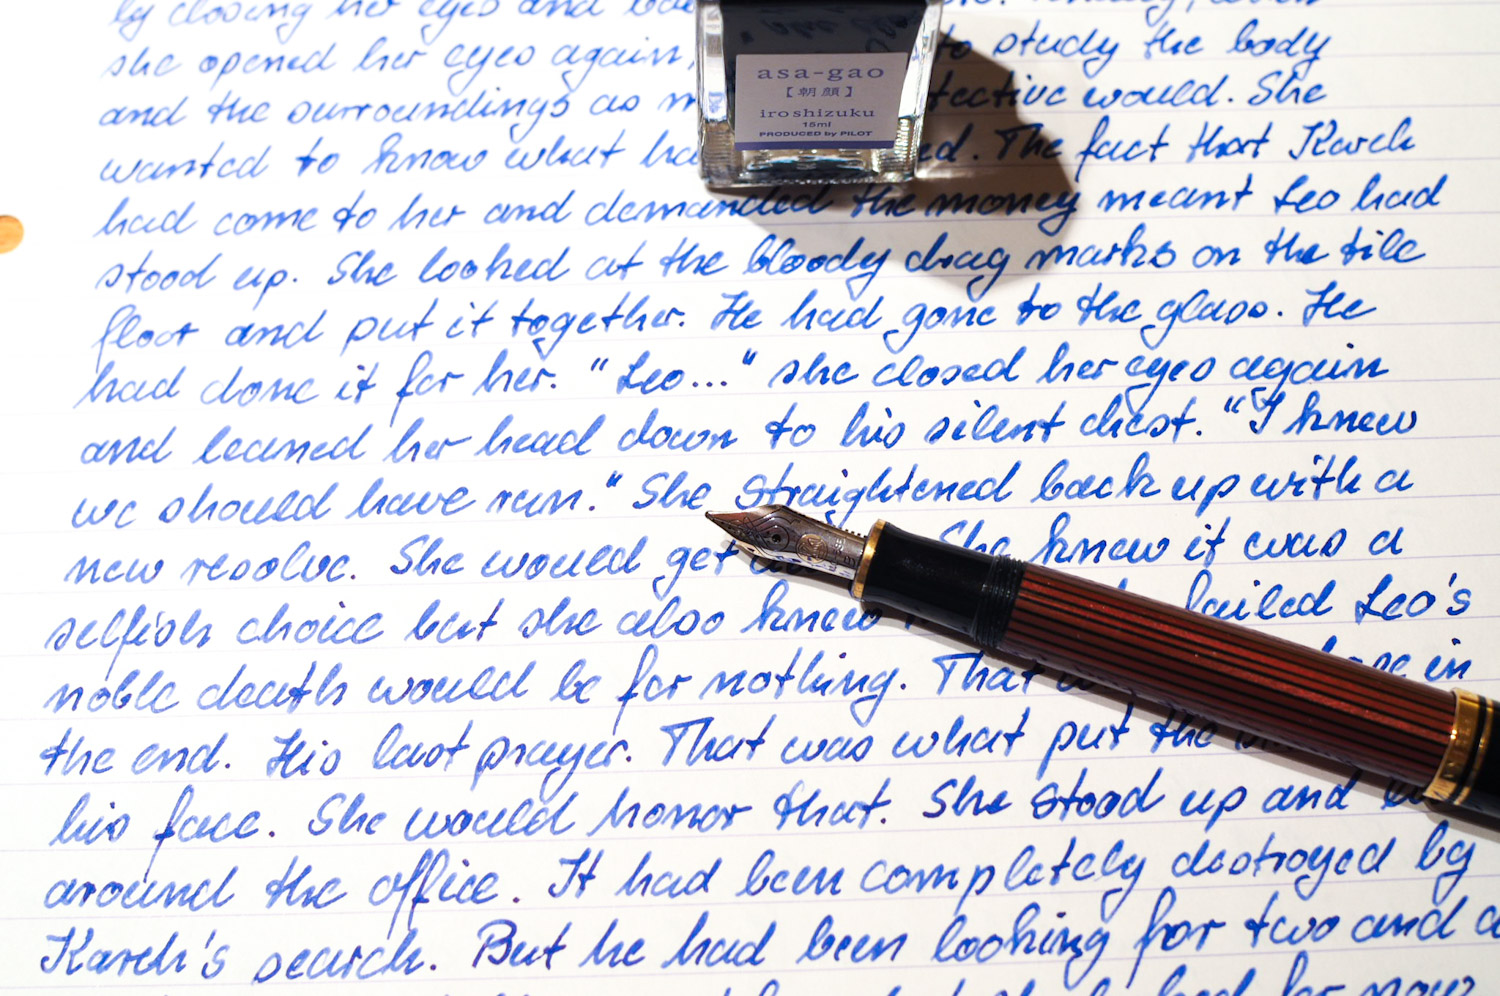 by closing her eyes and
she opened her eyes again, to study the body
and the surroundings as would. She
wanted to know what The fact that Karch
had come to her and demanded the money meant Leo had
stood up. She looked at the bloody drag marks on the tile
floor and put it together. He had gone to the glass. He
had done it for her. "Leo..." she closed her eyes again
and leaned her head down to his silent chest. "I knew
we should have run." She straightened back up with a
new resolve. She would get She knew it was a
selfish choice but she also knew failed Leo's
noble death would be for nothing. That in
the end. His last prayer. That was what put the
his face. She would honor that. She stood up and
around the office. It had been completely destroyed by
Karch's search. But he had been looking for two and a
had for now
asa-gao
【朝顔】
iroshizuku
15ml
PRODUCED by PILOT